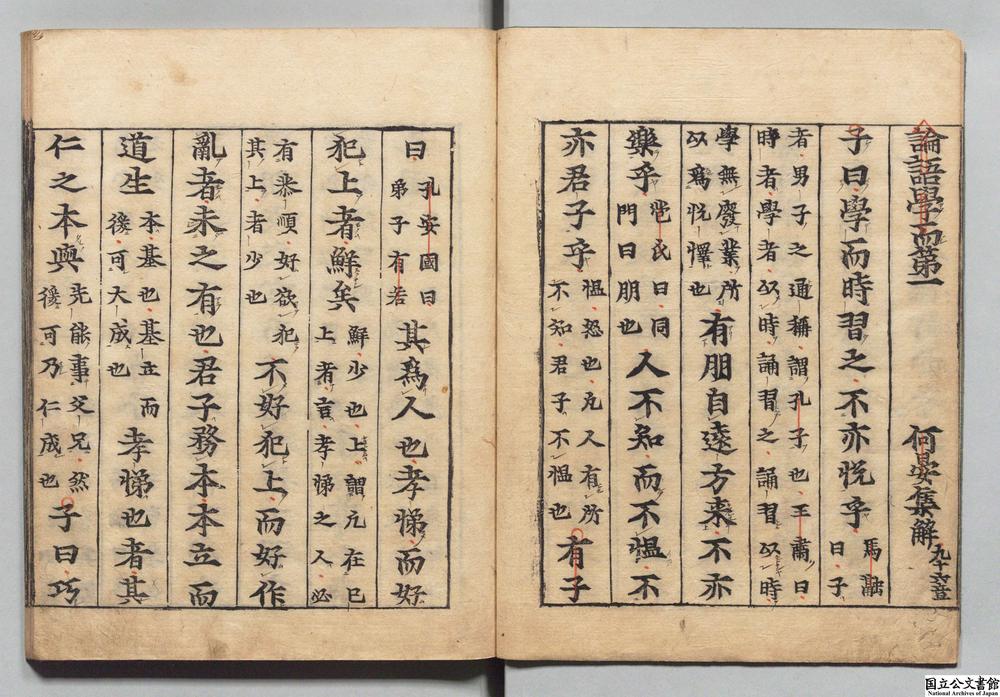 論語學而第一　何晏集解　凢十六章
子曰學而時習之不亦悅乎馬融曰子
者男子之通稱謂孔子也王肅曰
時者學者以時誦習之誦習以時
學無廢業所以爲悅懌也有朋自遠方来不亦
樂乎苞氏曰同門曰朋也人不知而不愠不
亦君子乎愠怒也凢人有所不知君子不愠也有子
曰孔安國曰弟子有若其爲人也孝悌而好
犯上者鮮矣鮮少也上謂凢在己上者言孝悌之人必
有恭順好欲犯其上者少也不好犯上而好作
亂者未之有也君子務本本立而
道生本基也基立而後可大成也孝悌也者其
仁之本與先能事父兄然後可乃仁成也子曰巧
国立公文書館
National Archives of Japan